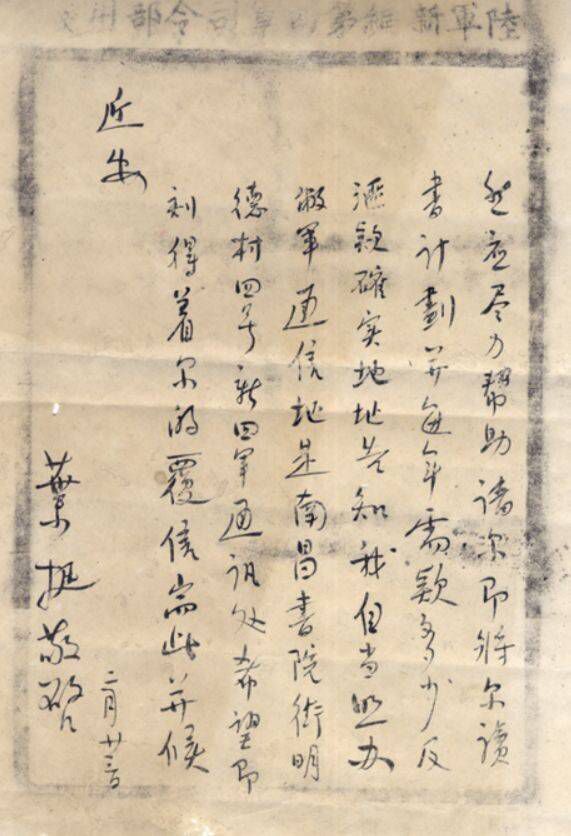 陸軍新編第四軍司令部用
然应尽力幫助請尔即將尔讀
書计劃并每年需款多少及
滙款確实地址告知我自当照办
敝軍通信址是南昌書院街明
德村四号新四軍通訊处希望即
刻得着尔的覆信耑此并候
近安
葉挺敬啓
二月廿三日